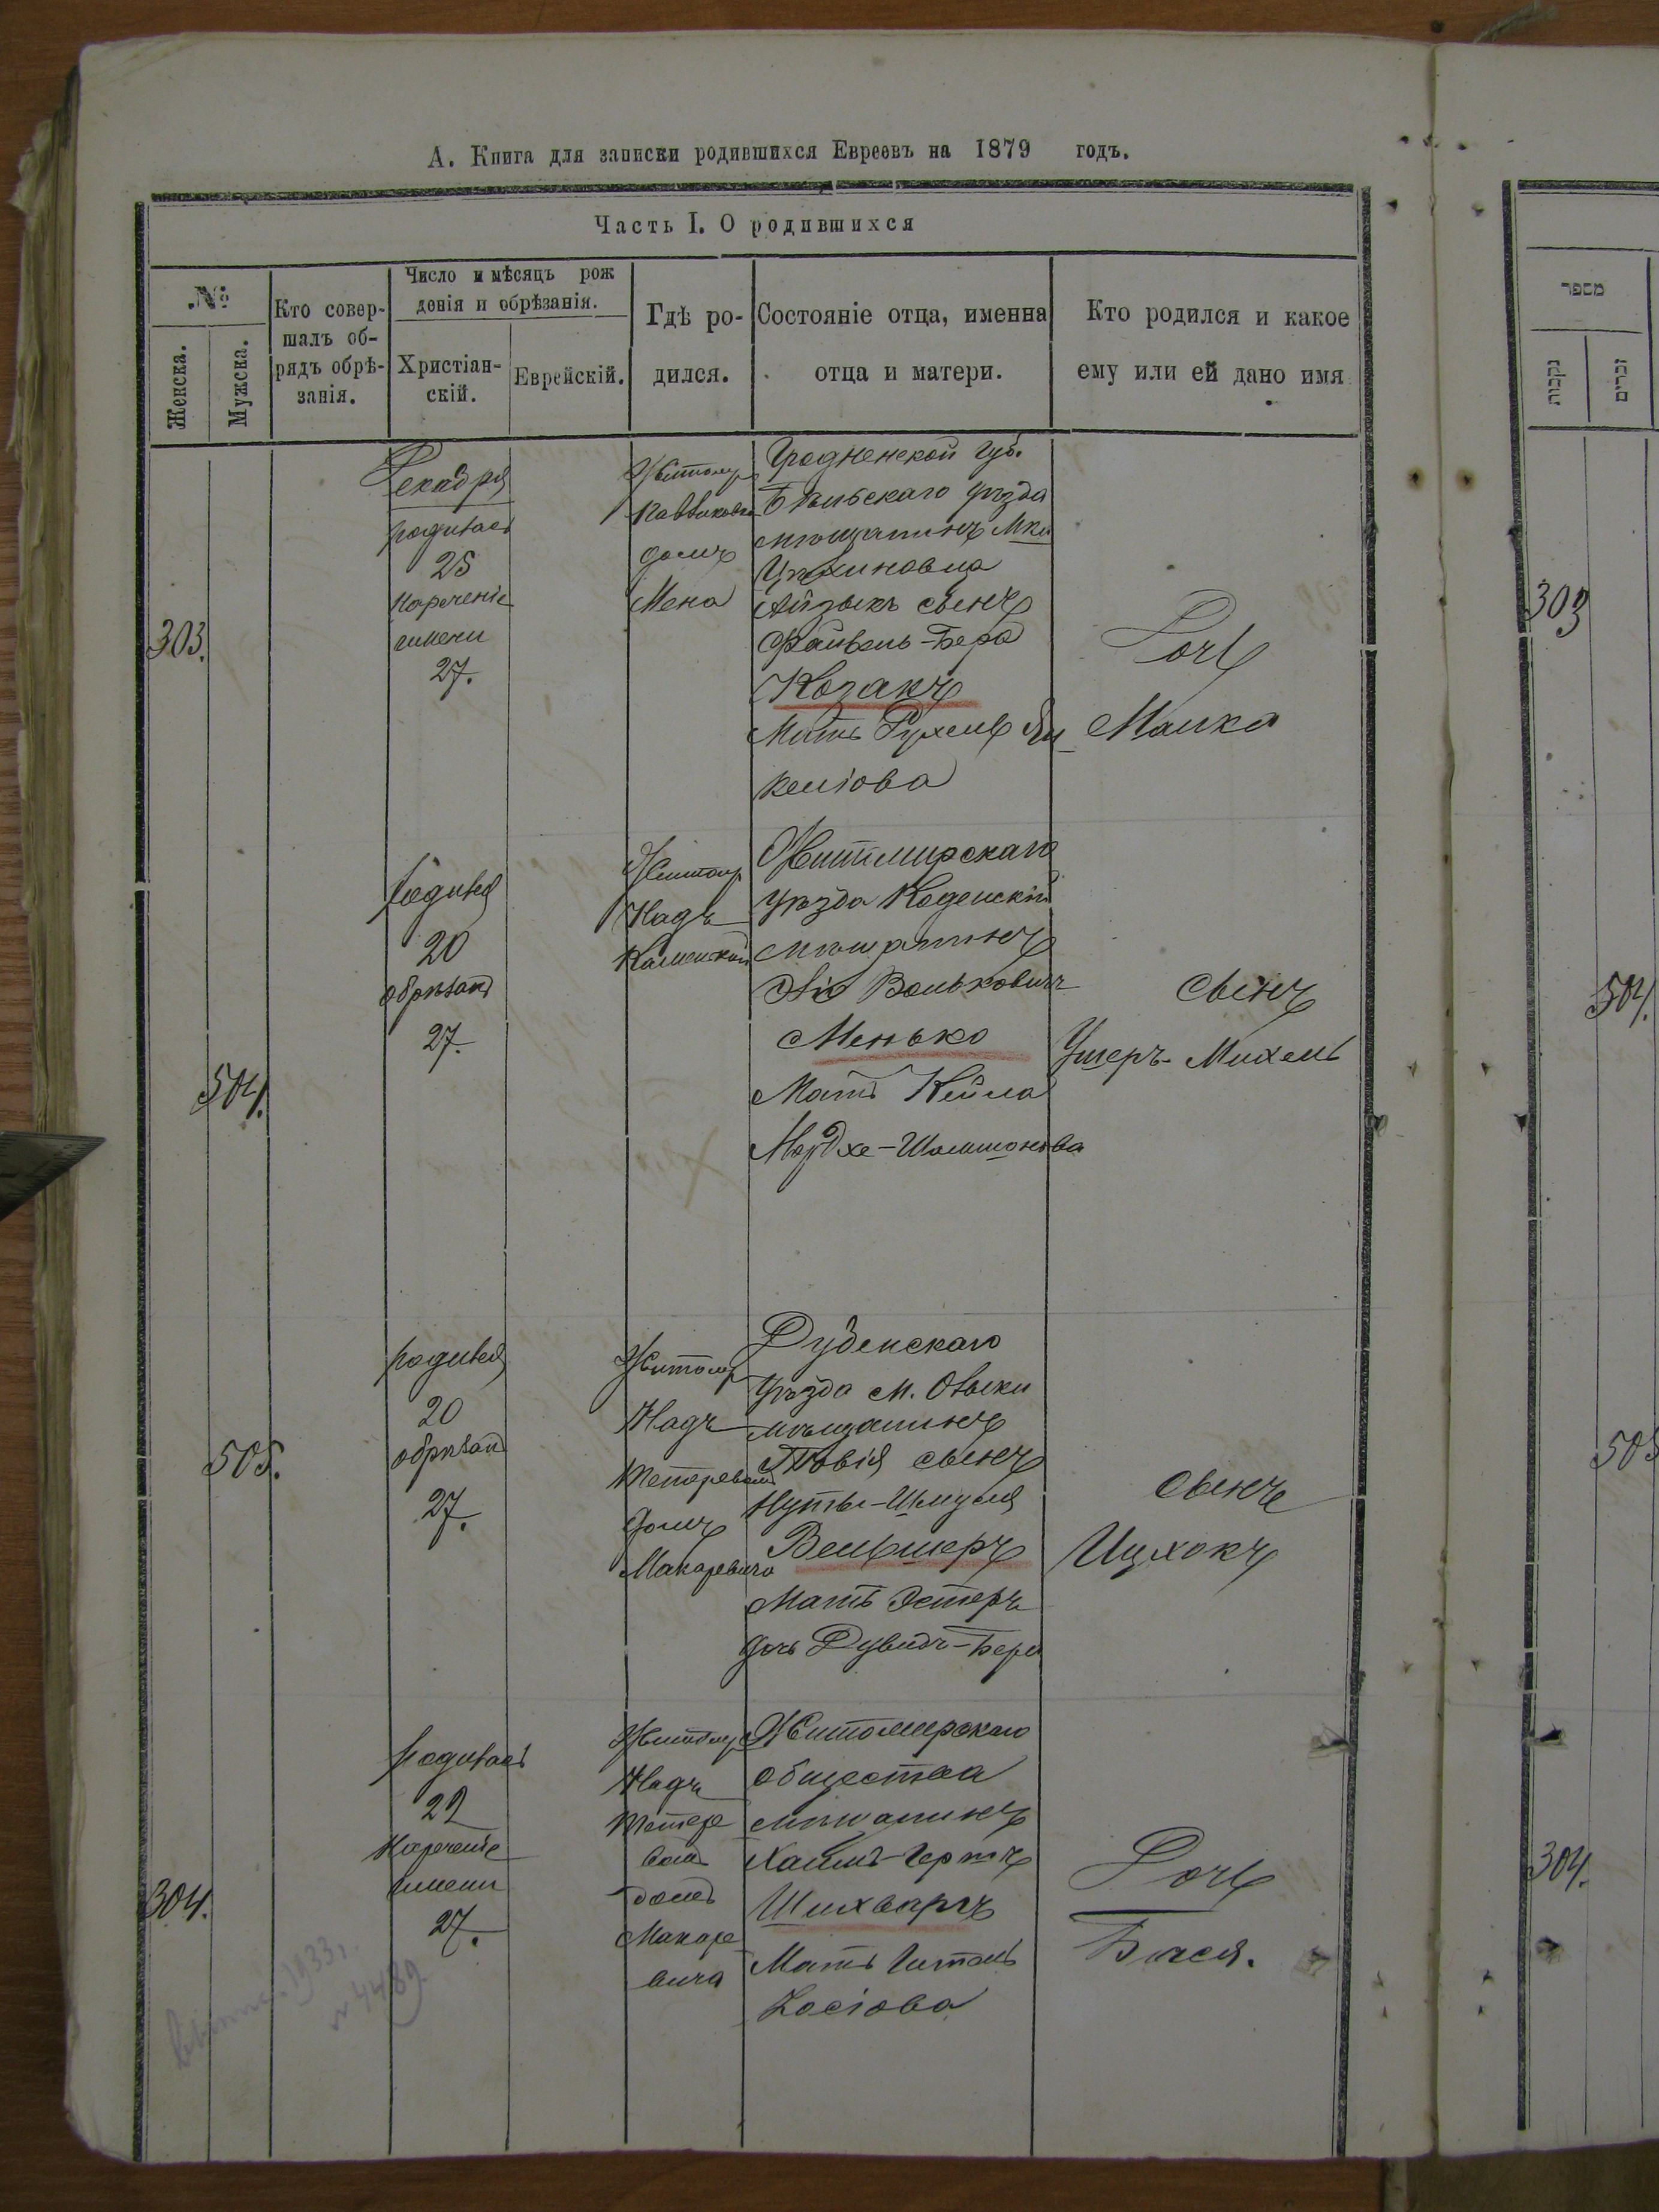 А. Книга для записки родившихся Евреевъ на 1879 годъ.
Часть I. О родившихся
№
Женска.
Мужска.
Кто совер-
шалъ об-
рядъ обрѣ-
занія.
Число и мѣсяцъ рож
денія и обрѣзанія.
Христіан-
скій.
Еврейскій.
Гдѣ ро-
дился.
Состояніе отца, именна
отца и матери.
Кто родился и какое
ему или ей дано имя
303.
Декабря
родилась
25
нареченіе
имени
27.
Житомир
домъ
Мена
Гродненской губ.
Бѣльскаго уѣзда
мѣщанинъ
Айзыкъ сынъ
Файвель-Бера
Козакъ
Мать Рухель
Дочь
Малка
504.
родился
20
обрѣзанъ
27.
Житомир
Надъ
Каменкой
Житомирскаго
уѣзда Коденскій
мѣщанинъ
Вольковичъ
Менько
Мать Кейла
Мордхе-Шлимонова
сынъ
Ушеръ-Михель
505.
родился
20
обрѣзанъ
27.
Житомир
Надъ
Тетеревомъ
домъ
Макаревича
Дубенскаго
уѣзда М. Олыки
мѣщанинъ
Товія сынъ
Нуты-Шмуля
Вельшеръ
Мать Эстеръ
дочь Дувидъ-Бера
сынъ
Ицхокъ
304.
родилась
22
Нареченіе
имени
27.
Житомир
Надъ
Тетере
вомъ
домъ
Макаре
вича
Житомирскаго
общества
мѣщанинъ
Хаимъ-Гершъ
Мать Гитль
Іосіова
Дочь
Бася.
1933 г.
№ 4489
מספר
נקבות
זכרים
303
504.
505
304.